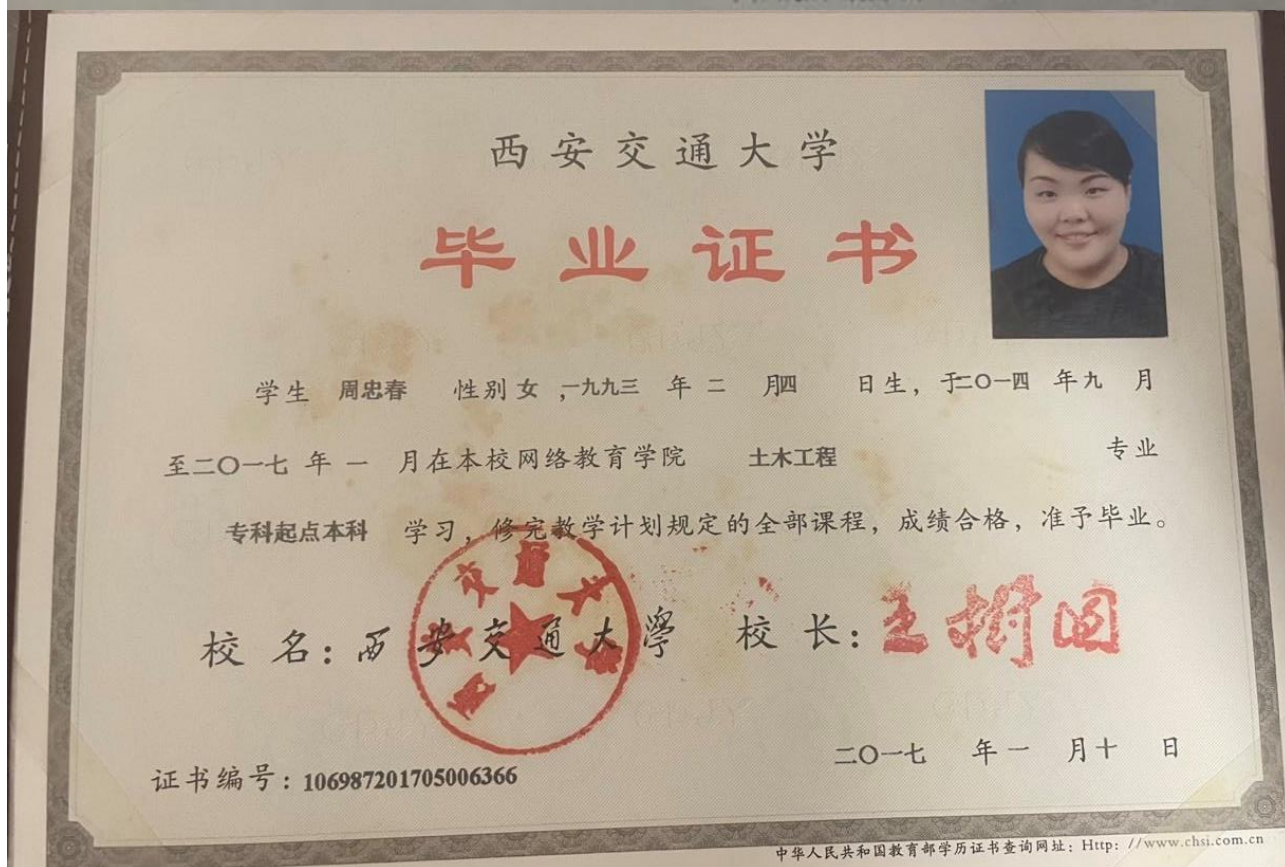 西安交通大学
毕业证书
学生 周忠春 性别 女 ,一九九三 年 二 月四 日生，于二〇一四 年 九 月
至二〇一七 年 一 月在本校网络教育学院 土木工程 专业
专科起点本科 学习，修完教学计划规定的全部课程，成绩合格，准予毕业。
校名：西安交通大學 校长：王树国
二〇一七 年 一 月 十 日
证书编号：106987201705006366
中华人民共和国教育部学历证书查询网址：Http：//www.chsi.com.cn